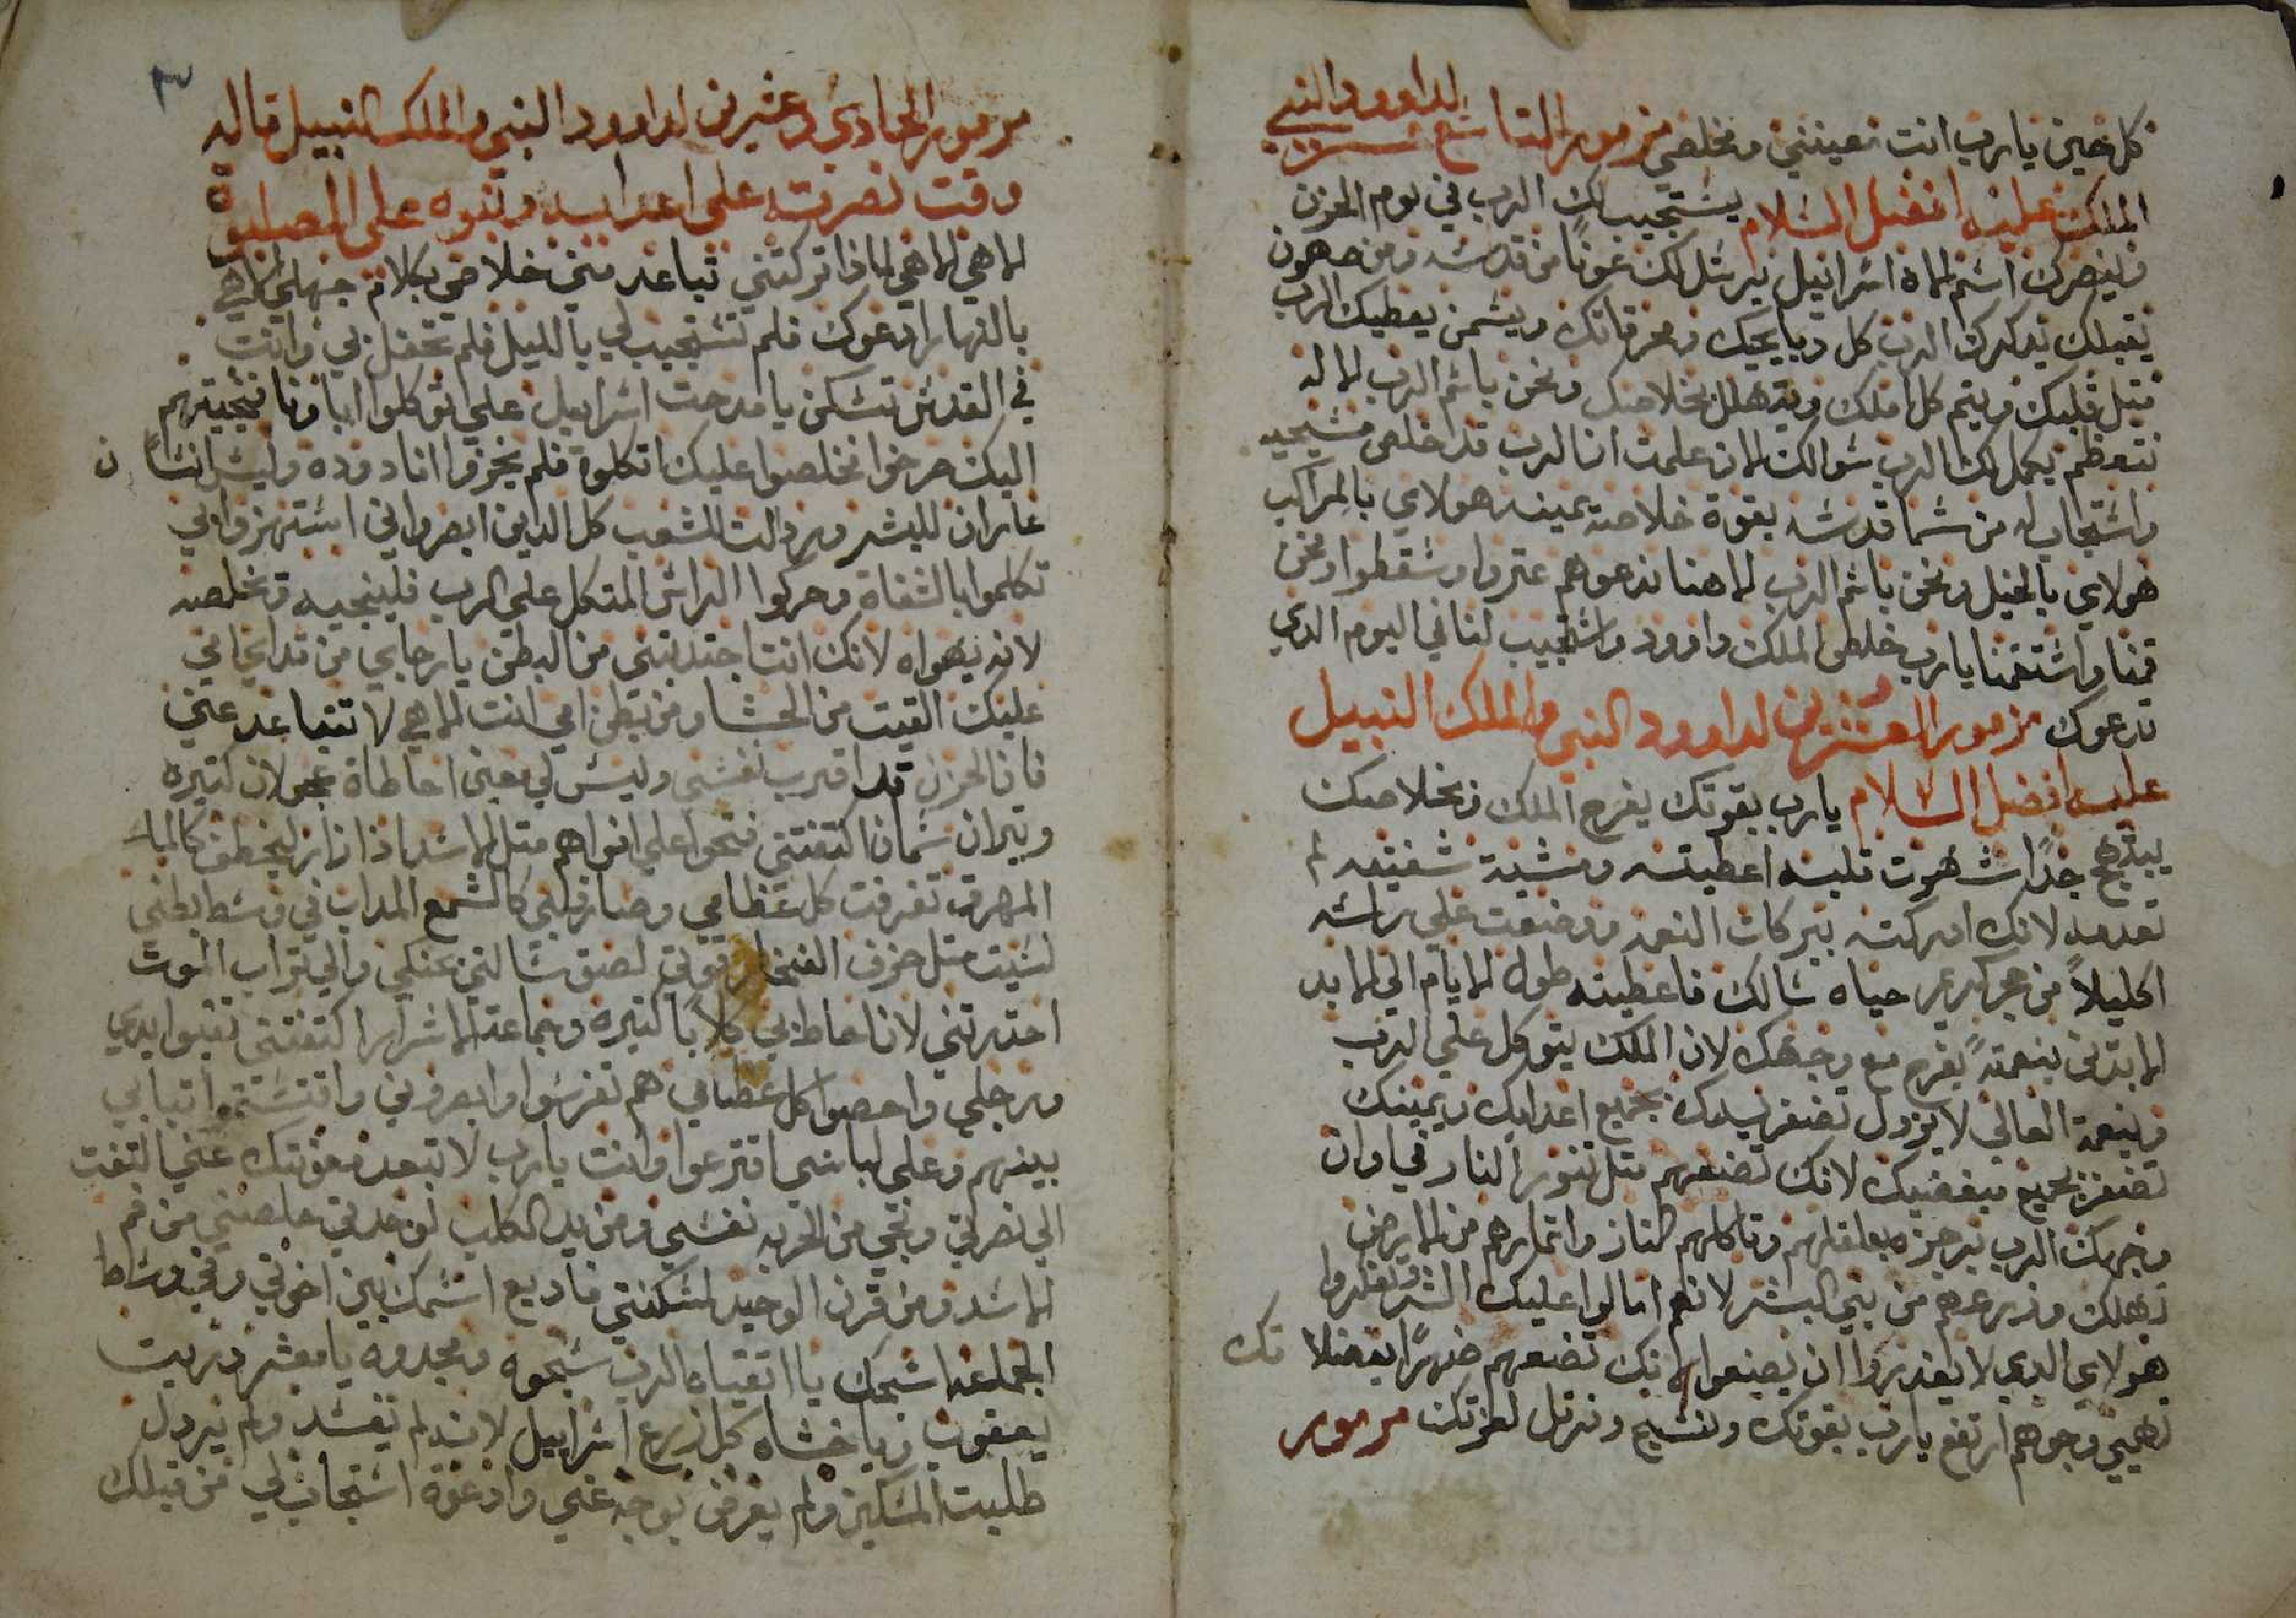 كل حين يارب انت تعينني ومخلصي مزمور التاسع عشر لداوود النبي
الملك عليه افضل السلام يستجيب لك الرب في يوم الحزن
وينصرك اسم الاه اسراييل يرسل لك عونًا من قدسه ومن صهيون
يقبلك يدكرك الرب كل دبايحك ومحرقاتك ويسمن يعطيك الرب
متل قلبك ويتم كل املك ويتهلل بخلاصك ونحن باسم الرب الاله
نتعظم يكمل لك الرب سوالك الان علمت ان الرب قد اخلص مسيحيه
واستجاب له من سما قدسه بقوة خلاصة يمينه هولاي بالمراكب
هولاي بالخيل ونحن باسم الرب الاهنا ندعو هم عتروا وسقطوا ونحن
قمنا واستقمنا يارب خلص الملك داوود واستجيب لنا في اليوم الدي
ندعوك مزمور العشرين لداوود النبي والملك النبيل
عليه افضل السلام يارب بقوتك يفرح الملك وبخلاصك
يبتهج جدًا شهوت قلبه اعطيته ومشية شفتيه لم
تعدمه لانك ادركته ببركات النعمه ووضعت على راسه
اكليلاً من حجر كريم حياه سالك فاعطيته طول الايام الى الابد
الابدى بنعمتةً يفرح مع وجهك لان الملك يتوكل علي الرب
وبنعمة العالي لا يزول تضفر يدك بجميع اعدايك ويمينك
تضفر بجميع مبغضيك لانك تضعهم متل تنور النار في اوان
وجهك الرب يرجزه يعلقلهم وتاكلهم النار واتمارهم من الارض
تهلك وزرعهم من بني البشر لانهم امالوا عليك الشر وتفكروا
هولاي الدي لا يقدروا ان يصنعوا لانك تضعهم ضهرًا بفضلا تك
تهيي وجوههم ارتفع يارب بقوتك ونسبح ونرتل لعزتك مزمور
٣
مزمور الحادي وعشرين لداوود النبي والملك النبيل قاله
وقت نصرته على اعدايه وتنوه على المصلوبة
الاهي الاهي لماذا تركتني تباعد مني خلاصي بكلام جهلي الاهي
بالنهار ادعوك فلم تستجيب لي بالليل فلم تحفل بي وانت
في القدس تسكن يا مدحت اسراييل علي اتوكلوا ابا ونا فنجيتهم
اليك صرخوا فخلصوا عليك اتكلوة فلم يخزوا انا دوده وليس انسًا ن
عاران للبشر ورذالت الشعب كل الداين ابصروا ني استهزوا بي
تكلموا بالشفاة وحركوا الراس المتكل على الرب فلينجيه ويخلصه
لانه يهواه لانك انت اجتدبتني من البطن يارجاي من تدايي امي
عليك القيت من الحشا ومن بطن امي انت الاهي لا تتباعد عني
فان الحزن قد اقترب نفسي وليس لي معين احاطاة عجولان كتيره
وتيران سمان اكتنفتني فتحوا علي افواهم متل الاسد اذا زار ليخطف كالما
المهرق تفرقت كل عظامي وصار قلبي كالشمع المداب في وسط بطني
لسيت متل خزف الفخار قوتي لصق لساني بحنكي والي تراب الموت
احدرتني لانا حاط بي كلابًا كتيره وجماعة الاشرار اكتنفتني تقبوا يدي
ورجلي واحصوا كل عظامي هم تفرسوا وابصروني واقتسموا تيابي
بينهم وعلى لباسي اقترعوا وانت يارب لا تبعد معونتك عني التفت
الي نصرتي ونجي من الحربه نفسي ومن يد الكلب لوحدتي خلصني من فم
الاسد ومن قرن الوحيد لمسكنتي فاديع اسمك بين اخوتي وفي وساط
الجماعه اسبحك يا اتقياه الرب سبحوه ومجدوه يا معشر دريت
يعقوب ويا خشاه كل زرع اسراييل لانه لم يفسد ولم يردل
طلبت المسكين ولم يعرض بوجه عني وادعوة استجاب لي من قبلك